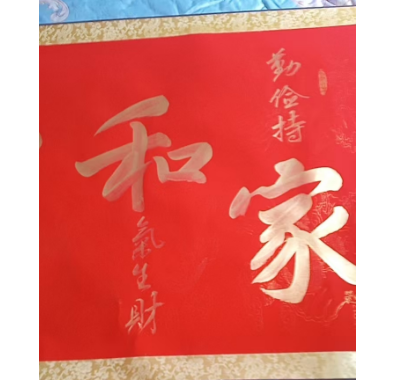 勤俭持
家
和
氣生財